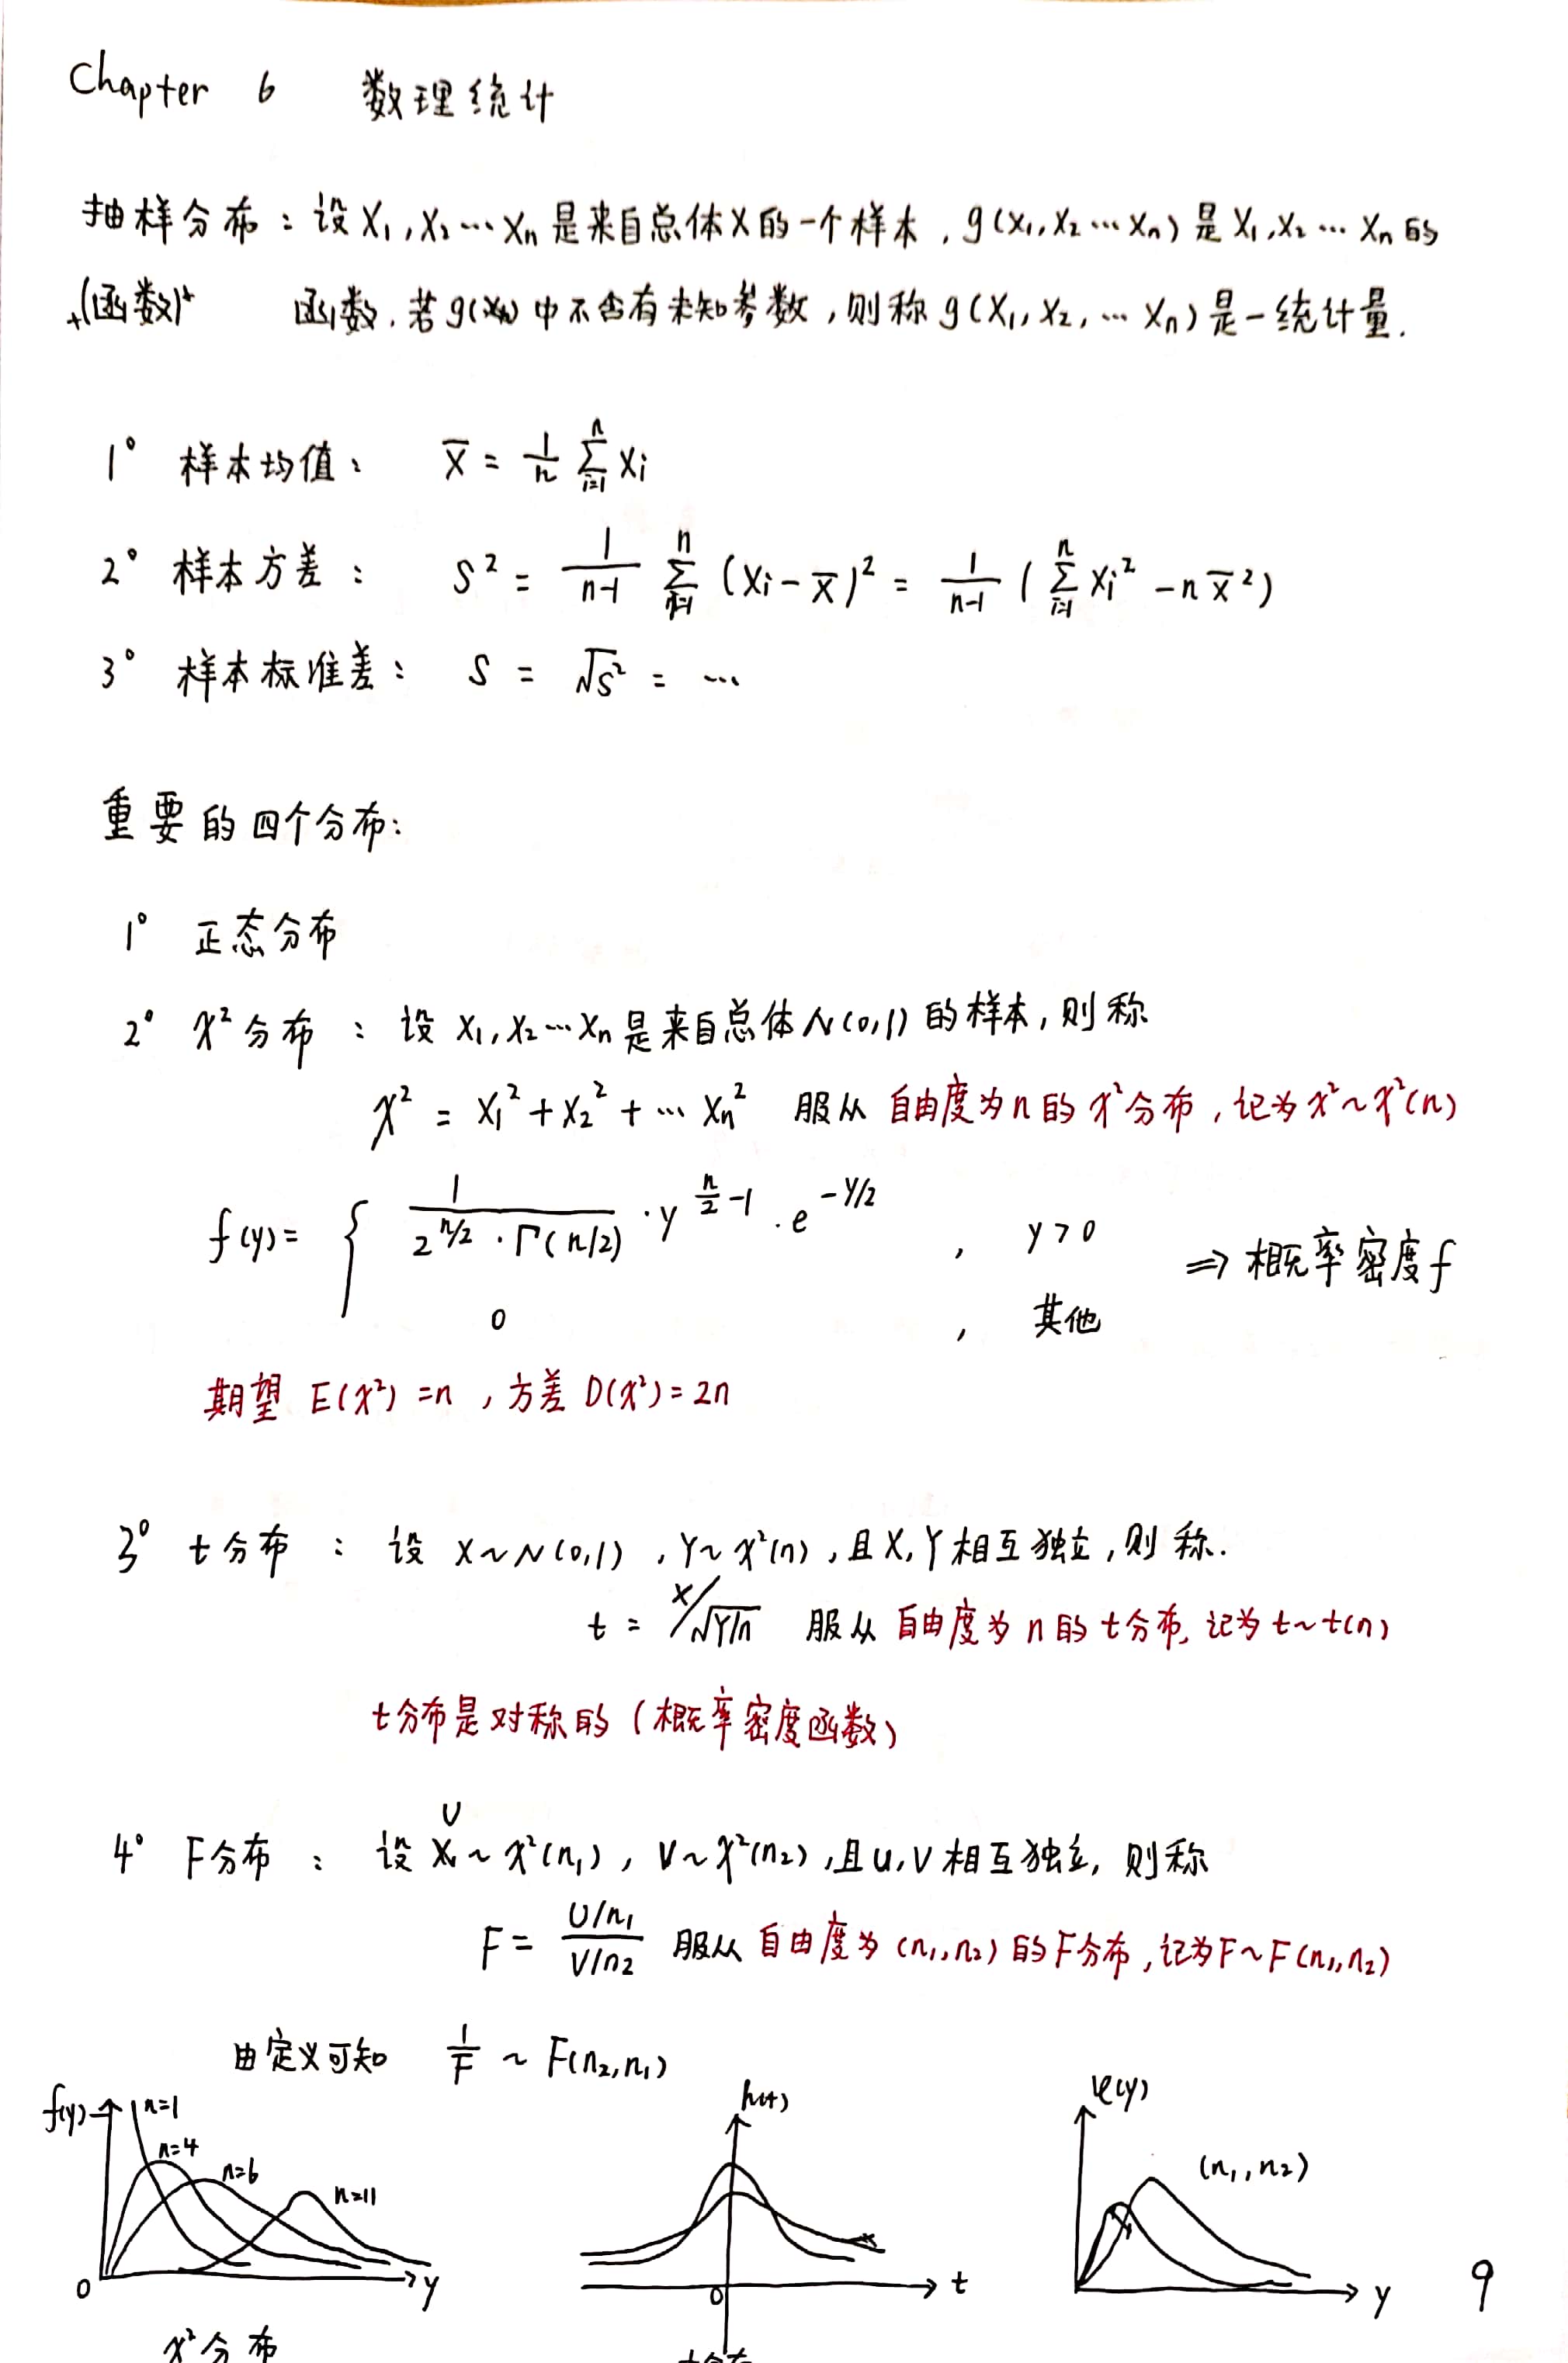 Chapter 6 数理统计
抽样分布：设X₁,X₂…Xₙ是来自总体X的一个样本，g(x₁,x₂…xₙ)是X₁,X₂…Xₙ的
(函数) 函数.若g(xₙ)中不含有未知参数，则称g(X₁,X₂,…Xₙ)是一统计量.
1° 样本均值： X̄ = 1/n ∑ᵢ₌₁ⁿ Xi
2° 样本方差： S² = 1/(n-1) ∑ᵢ₌₁ⁿ (Xi-X̄)² = 1/(n-1) (∑ᵢ₌₁ⁿ Xi² - nX̄²)
3° 样本标准差： S = √S² = …
重要的四个分布：
1° 正态分布
2° χ²分布 ：设 X₁,X₂…Xₙ是来自总体N(0,1)的样本,则称
χ² = X₁²+X₂²+…Xₙ² 服从 自由度为n的χ²分布，记为χ²~χ²(n)
f(y)= { 1/(2^(n/2)·Γ(n/2)) ·y^(n/2-1) ·e^(-y/2) , y>0 ⇒ 概率密度f
0 , 其他
期望 E(χ²)=n ，方差 D(χ²)=2n
3° t分布 ：设 X~N(0,1) ,Y~χ²(n),且X,Y相互独立,则称.
t = X/√(Y/n) 服从 自由度为n的t分布,记为t~t(n)
t分布是对称的（概率密度函数）
4° F分布 ：设 U~χ²(n₁), V~χ²(n₂),且U,V相互独立,则称
F = (U/n₁)/(V/n₂) 服从 自由度为(n₁,n₂)的F分布,记为F~F(n₁,n₂)
由定义可知 1/F ~ F(n₂,n₁)
f(y) n=1 n=4 n=6 n=11 0 y
h(t) 0 t
φ(y) (n₁,n₂) y
9
χ²分布